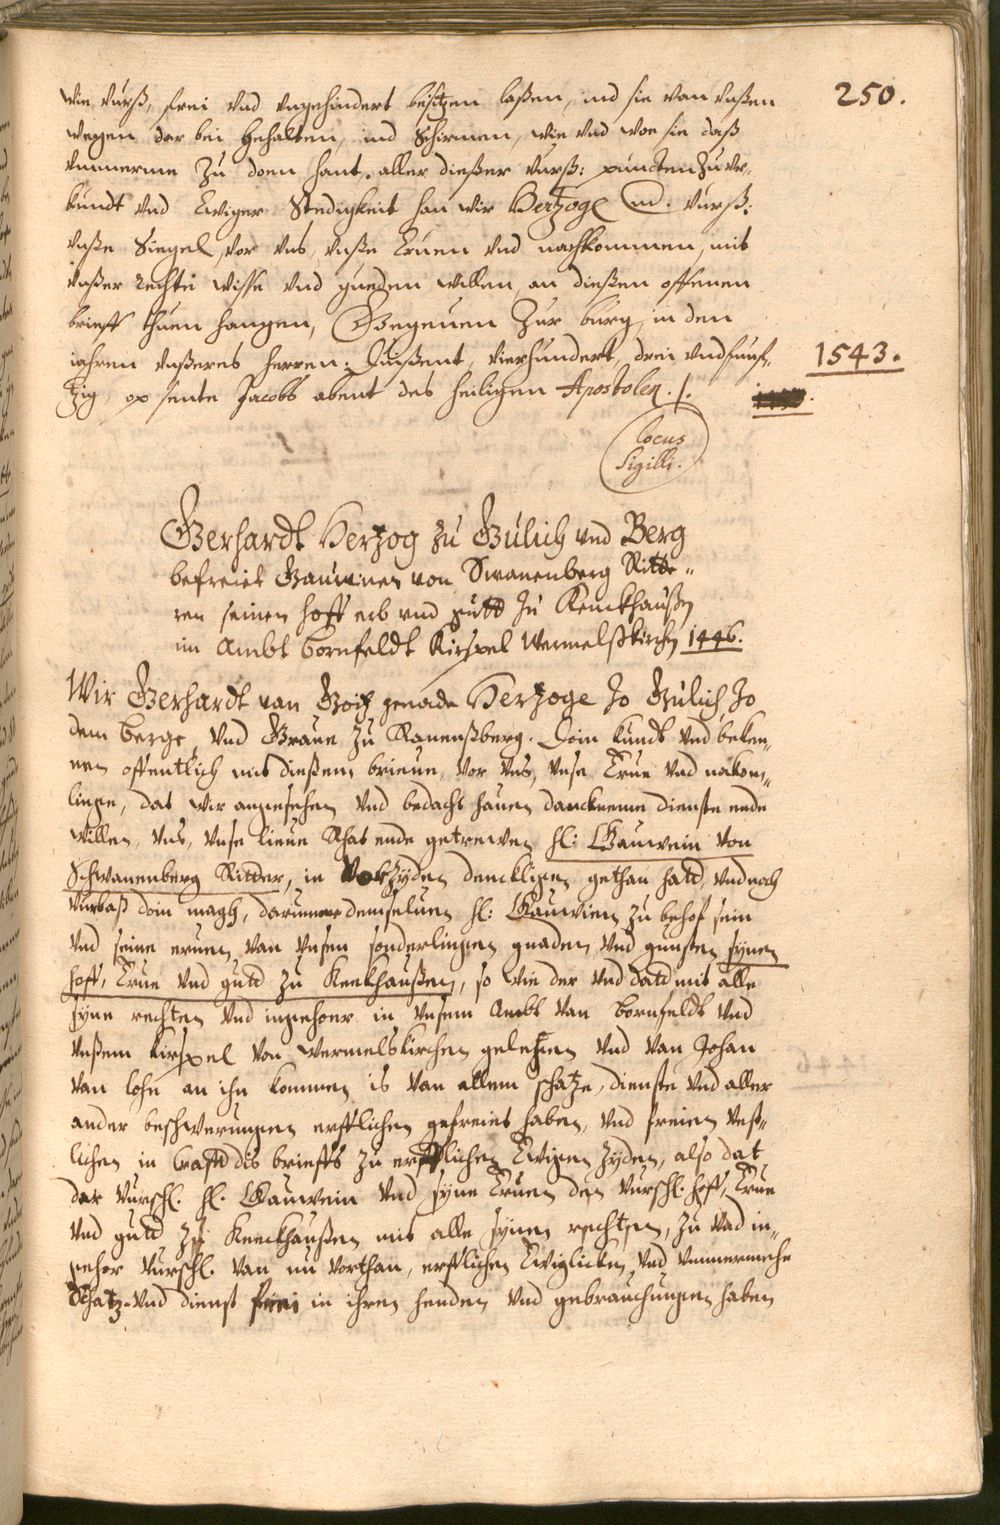 250.
wie vurß, frei vnd vngehindert besitzen laßen, ind sie van vnßen
wegen dar bei gehalten, ind Schirmen, wie vnd woe sie daß
vmmerme zu doen hant. aller dießer vurß: puncten zu vr„
kundt vnd Ewiger Stedigkeit han wir Hertzoge vurß:
vnße Siegel vor vns, vnße Eruen vnd nachkommen, mit
vnßer rechter wisse vnd gueden willen an dießen offenen
brieff thuen hangen, Gegeuen Zur burg, in den
iahren vnßeres herren: Dußent, vierhundert, drei vnd funf„
1543.
tzig, op sente Jacobs abent des heiligen Apostolen ./.
locus
Sigilli.
Gerhardt Hertzog zu Gulich vnd Berg
befreiet Gauwinen von Swanenberg Ritte„
ren seinen hoff erb vnd gutt zu Kenckhaußen
im Ambt Bornfeldt Kirspel Wermelskirchen 1446.
Wir Gerhardt van Gotz genade Hertzoge zo Gulich, zo
dem Berge, vnd Graue zu Rauenßberg. Doin kundt vnd beken„
nen offentlich mit dießem brieue, vor vns, vnse Erue vnd nakom„
linge, dat wir angesehen vnd bedacht hauen danckneme dienste ende
willen, vns, vnse lieue Rhat ende getrewen hl: Gauwein von
Schwanenberg Ritter, in vorzyden dencklichen gethan hatt, vnd noch
vurbaß doin magh, darumme demseluen hl: Gauwien zu behof sein
vnd seine eruen van vnsen sonderlingen gnaden vnd gunsten synen
hoff, Erue vnd gutt zu Kenkhaußen, so wie der vnd datt mit alle
syne rechten vnd ingehoer in vnsem Ambt van Bornfeldt vnd
vnßem Kirspel von Wermelskirchen gelegen vnd van Johan
van lohe an ihn kommen is van allem schatze, dienste vnd aller
ander beschwerungen erfflichen gefreiet haben, vnd freien vest„
lichen in Crafft dis brieffs zu erfflichen Ewigen zyden, also dat
der vurschl. hl. Gauwein vnd syne Eruen den vurschl. hoff, Erue
vnd gutt zu Kenckhaußen mit alle synen rechten, zu vnd in„
gehor vurschl. van nu vorthan, erfflichen Ewiglicken vnd vmmermehe
Schatz- vnd dienst frei in ihren henden vnd gebrauchungen haben